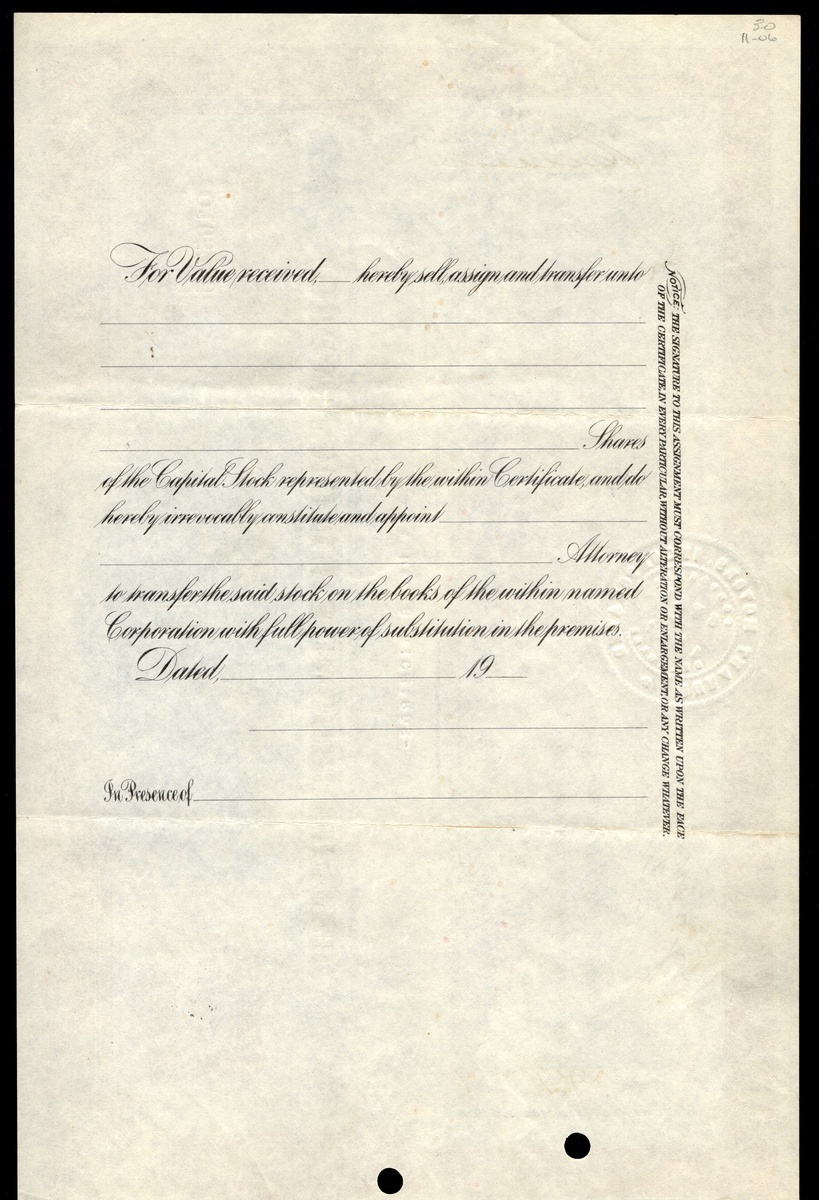 30
11-06
For Value received, ___ hereby sell, assign and transfer unto
Shares
of the Capital Stock represented by the within Certificate, and do
hereby irrevocably constitute and appoint
Attorney
to transfer the said stock on the books of the within named
Corporation with full power of substitution in the premises.
Dated, 19
In Presence of
NOTICE: THE SIGNATURE TO THIS ASSIGNMENT MUST CORRESPOND WITH THE NAME AS WRITTEN UPON THE FACE
OF THE CERTIFICATE, IN EVERY PARTICULAR, WITHOUT ALTERATION OR ENLARGEMENT, OR ANY CHANGE WHATEVER.